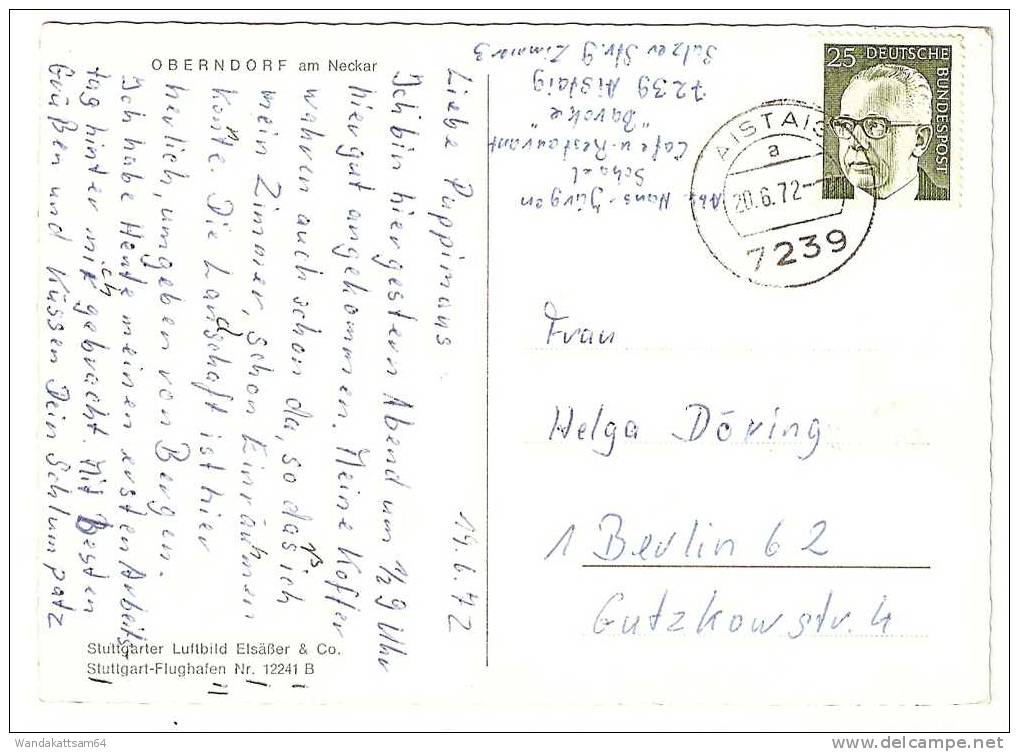 OBERNDORF am Neckar
Liebe Puppimaus 19.6.72
Ich bin hier gestern Abend um 1/2 9 Uhr
hier gut angekommen. Meine Koffer
wahren auch schon da, so das ich
mein Zimmer, schon Einräuhmen
konnte. Die Landschaft ist hier
herlich, umgeben von Bergen.
Ich habe Heute meinen ersten Arbeits-
tag hinter mich gebracht. Mit Besten
Grüßen und Küssen Dein Schlumpatz
Stuttgarter Luftbild Elsäßer & Co.
Stuttgart-Flughafen Nr. 12241 B
Abs. Hans-Jürgen
Schael
Cafe u. Restaurant
"Barock"
7239 Aistaig
Sulzer Str. 9 Zimmer 3
25 DEUTSCHE
BUNDESPOST
AISTAIG
a
20.6.72
7239
Frau
Helga Döring
1 Berlin 62
Gutzkowstr. 4
Wandakattsam64
www.delcampe.net